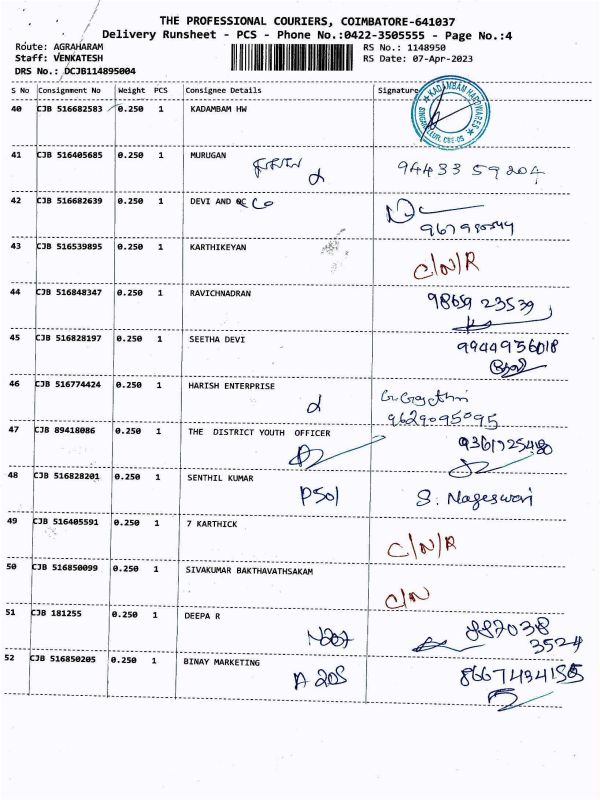 THE PROFESSIONAL COURIERS, COIMBATORE-641037
Delivery Runsheet - PCS - Phone No.:0422-3505555 - Page No.:4
Route: AGRAHARAM RS No.: 1148950
Staff: VENKATESH RS Date: 07-Apr-2023
DRS No.: DCJB114895004
S No Consignment No Weight PCS Consignee Details Signature
40 CJB 516682583 0.250 1 KADAMBAM HW
KADAMBAM HARDWARES
41 CJB 516405685 0.250 1 MURUGAN
94433 59204
42 CJB 516682639 0.250 1 DEVI AND CO
43 CJB 516539895 0.250 1 KARTHIKEYAN
C/N/R
44 CJB 516848347 0.250 1 RAVICHNADRAN 98659 23539
45 CJB 516828197 0.250 1 SEETHA DEVI 9944956018
46 CJB 516774424 0.250 1 HARISH ENTERPRISE
9629095095
47 CJB 89418086 0.250 1 THE DISTRICT YOUTH OFFICER
48 CJB 516828201 0.250 1 SENTHIL KUMAR
P501 S. Nageswari
49 CJB 516405591 0.250 1 7 KARTHICK
C/N/R
50 CJB 516850099 0.250 1 SIVAKUMAR BAKTHAVATHSAKAM
C/N
51 CJB 181255 0.250 1 DEEPA R 887038
N207 3524
52 CJB 516850205 0.250 1 BINAY MARKETING
A 205